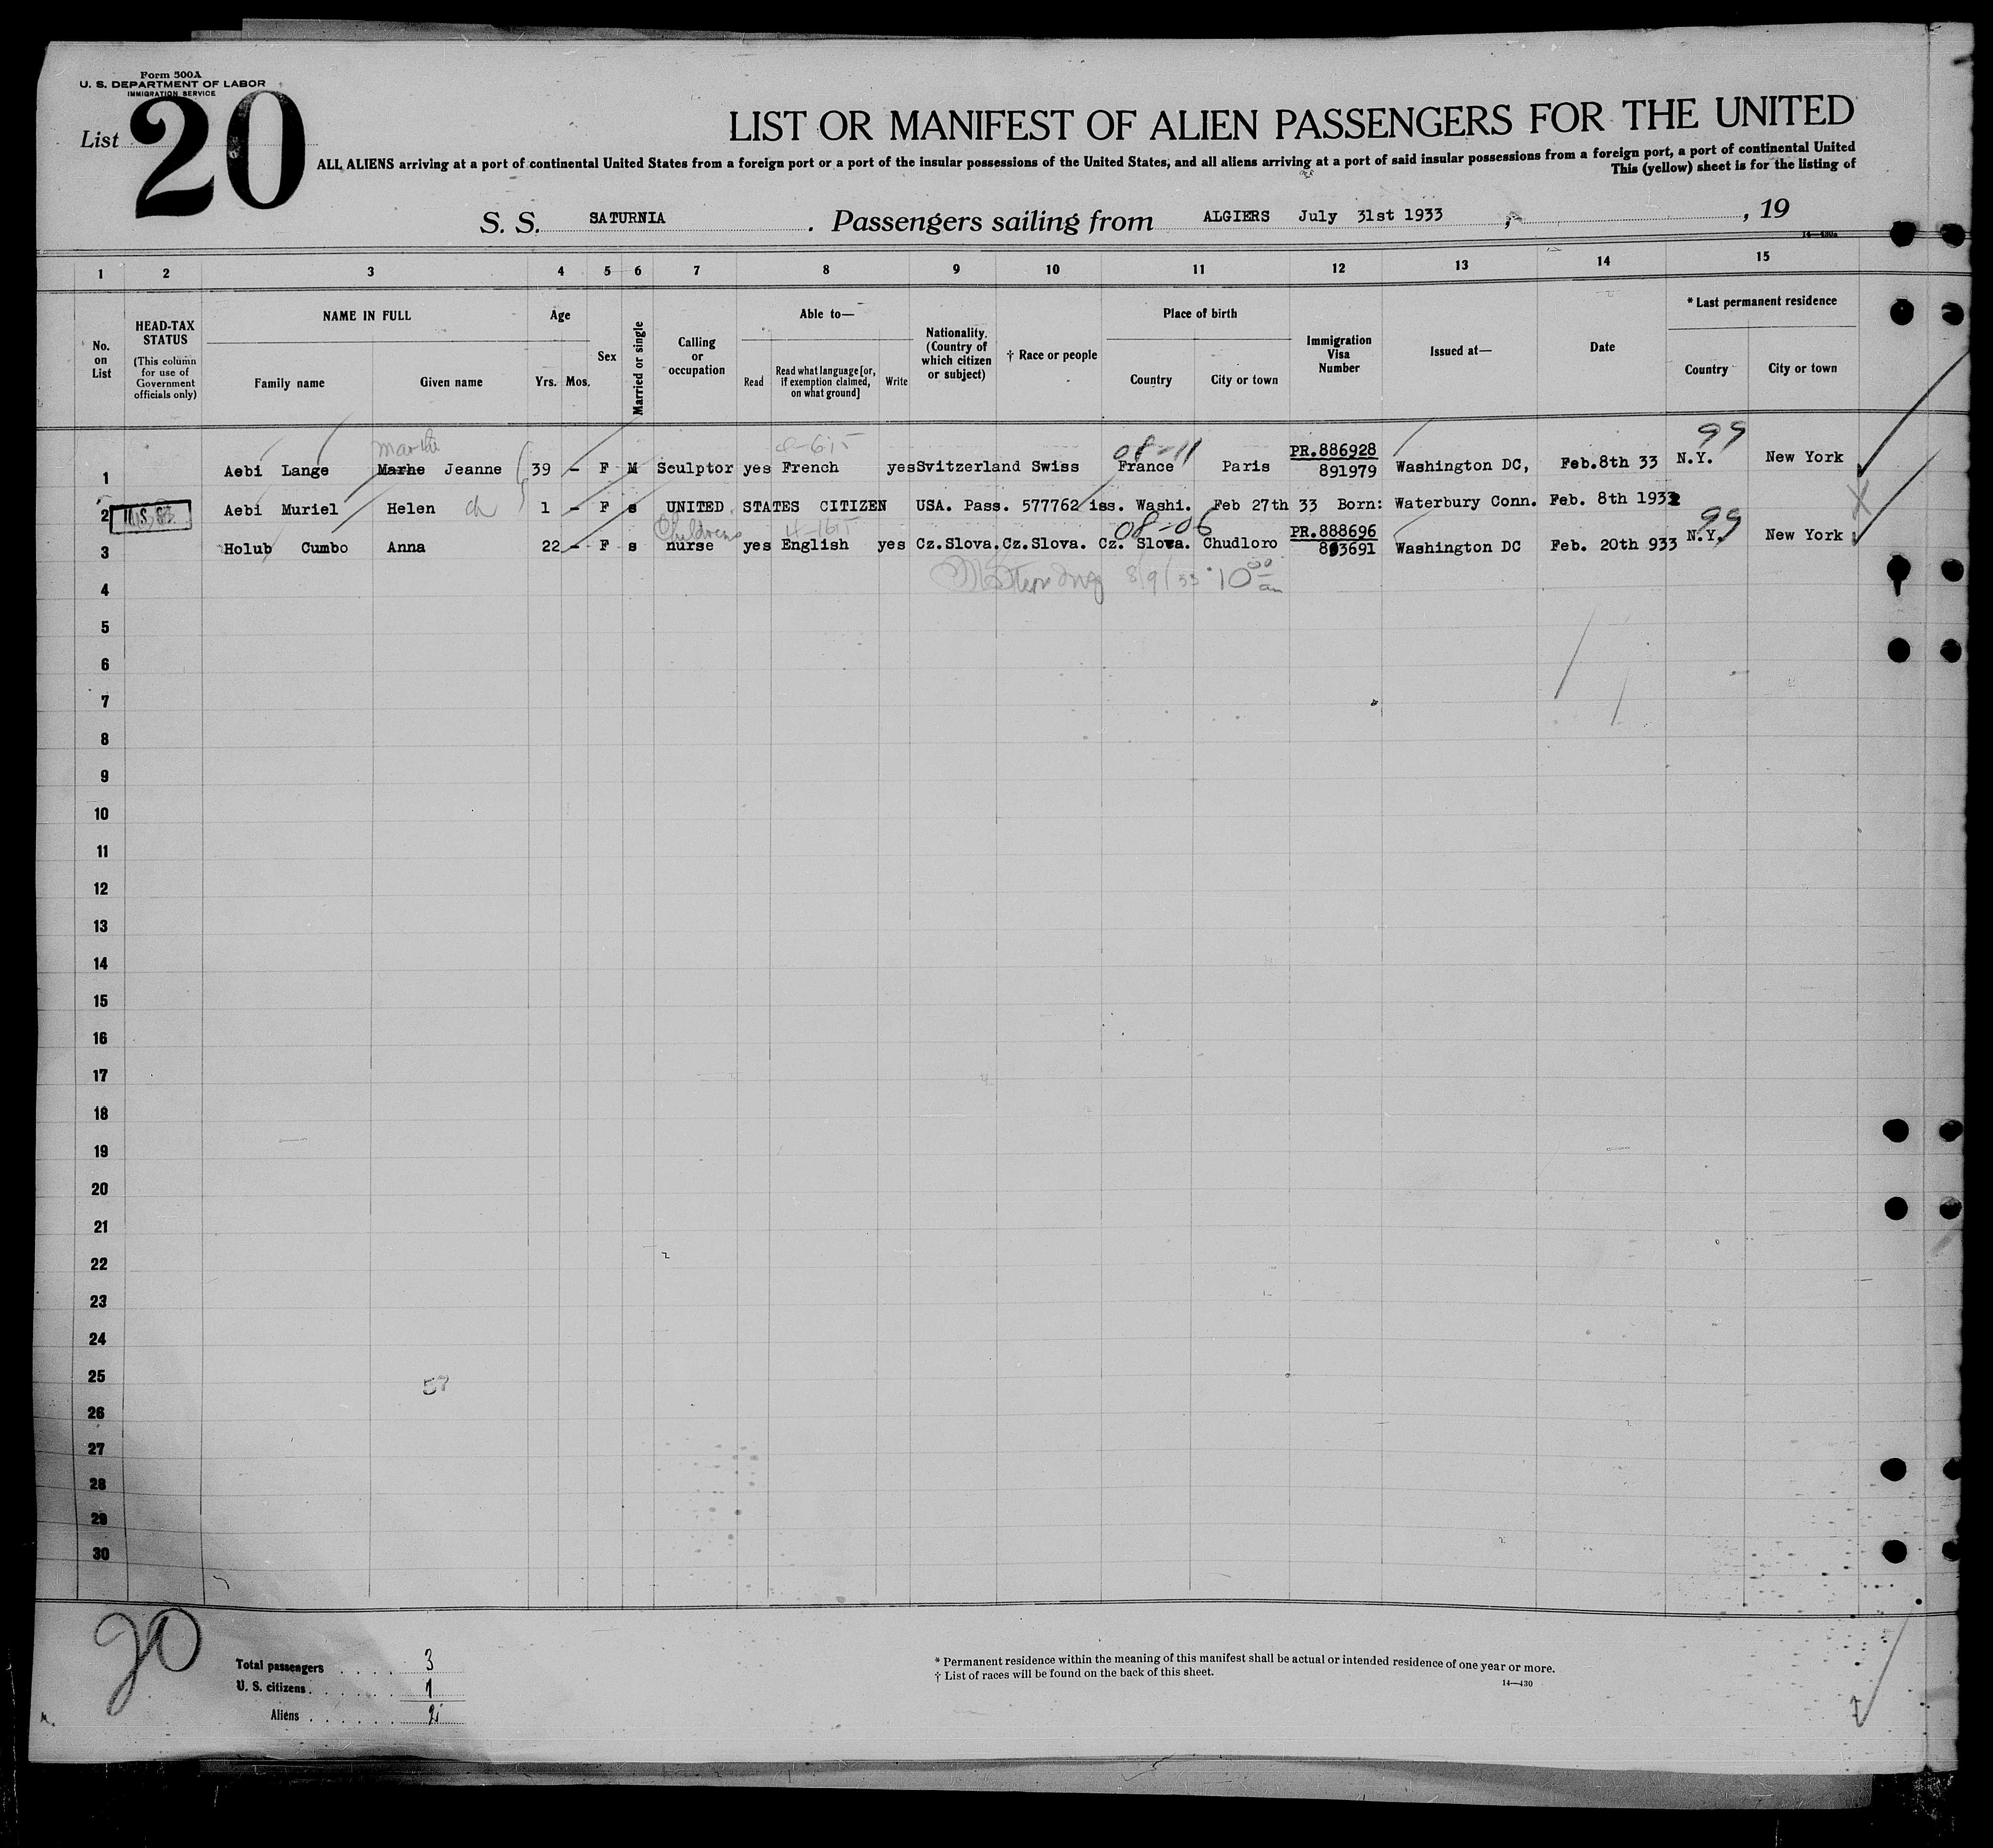 Form 500A
U. S. DEPARTMENT OF LABOR
IMMIGRATION SERVICE
List 20
LIST OR MANIFEST OF ALIEN PASSENGERS FOR THE UNITED
ALL ALIENS arriving at a port of continental United States from a foreign port or a port of the insular possessions of the United States, and all aliens arriving at a port of said insular possessions from a foreign port, a port of continental United
This (yellow) sheet is for the listing of
S. S. SATURNIA . Passengers sailing from ALGIERS July 31st 1933 , , 19
1 2 3 4 5 6 7 8 9 10 11 12 13 14 15
No. on List
HEAD-TAX STATUS
(This column for use of Government officials only)
NAME IN FULL
Family name Given name
Age
Yrs. Mos.
Sex
Married or single
Calling or occupation
Able to—
Read Read what language [or, if exemption claimed, on what ground] Write
Nationality. (Country of which citizen or subject)
† Race or people
Place of birth
Country City or town
Immigration Visa Number
Issued at—
Date
* Last permanent residence
Country City or town
Marthe 08-11 PR.886928 99
1 Aebi Lange Marhe Jeanne 39 - F M Sculptor yes French yes Svitzerland Swiss France Paris 891979 Washington DC, Feb.8th 33 N.Y. New York
2 U.S. Aebi Muriel Helen ch 1 - F s UNITED STATES CITIZEN USA. Pass. 577762 iss. Washi. Feb 27th 33 Born: Waterbury Conn. Feb. 8th 1932
Childrens 08-06 PR.888696 99
3 Holub Cumbo Anna 22 - F s nurse yes English yes Cz.Slova. Cz.Slova. Cz. Slova. Chudloro 893691 Washington DC Feb. 20th 933 N.Y. New York
8/9/33 10 00 am
4
5
6
7
8
9
10
11
12
13
14
15
16
17
18
19
20
21
22
23
24
25
57
26
27
28
29
30
20
Total passengers . . . . 3
U. S. citizens . . . . . . 1
Aliens . . . . . . 2
* Permanent residence within the meaning of this manifest shall be actual or intended residence of one year or more.
† List of races will be found on the back of this sheet.
14—430